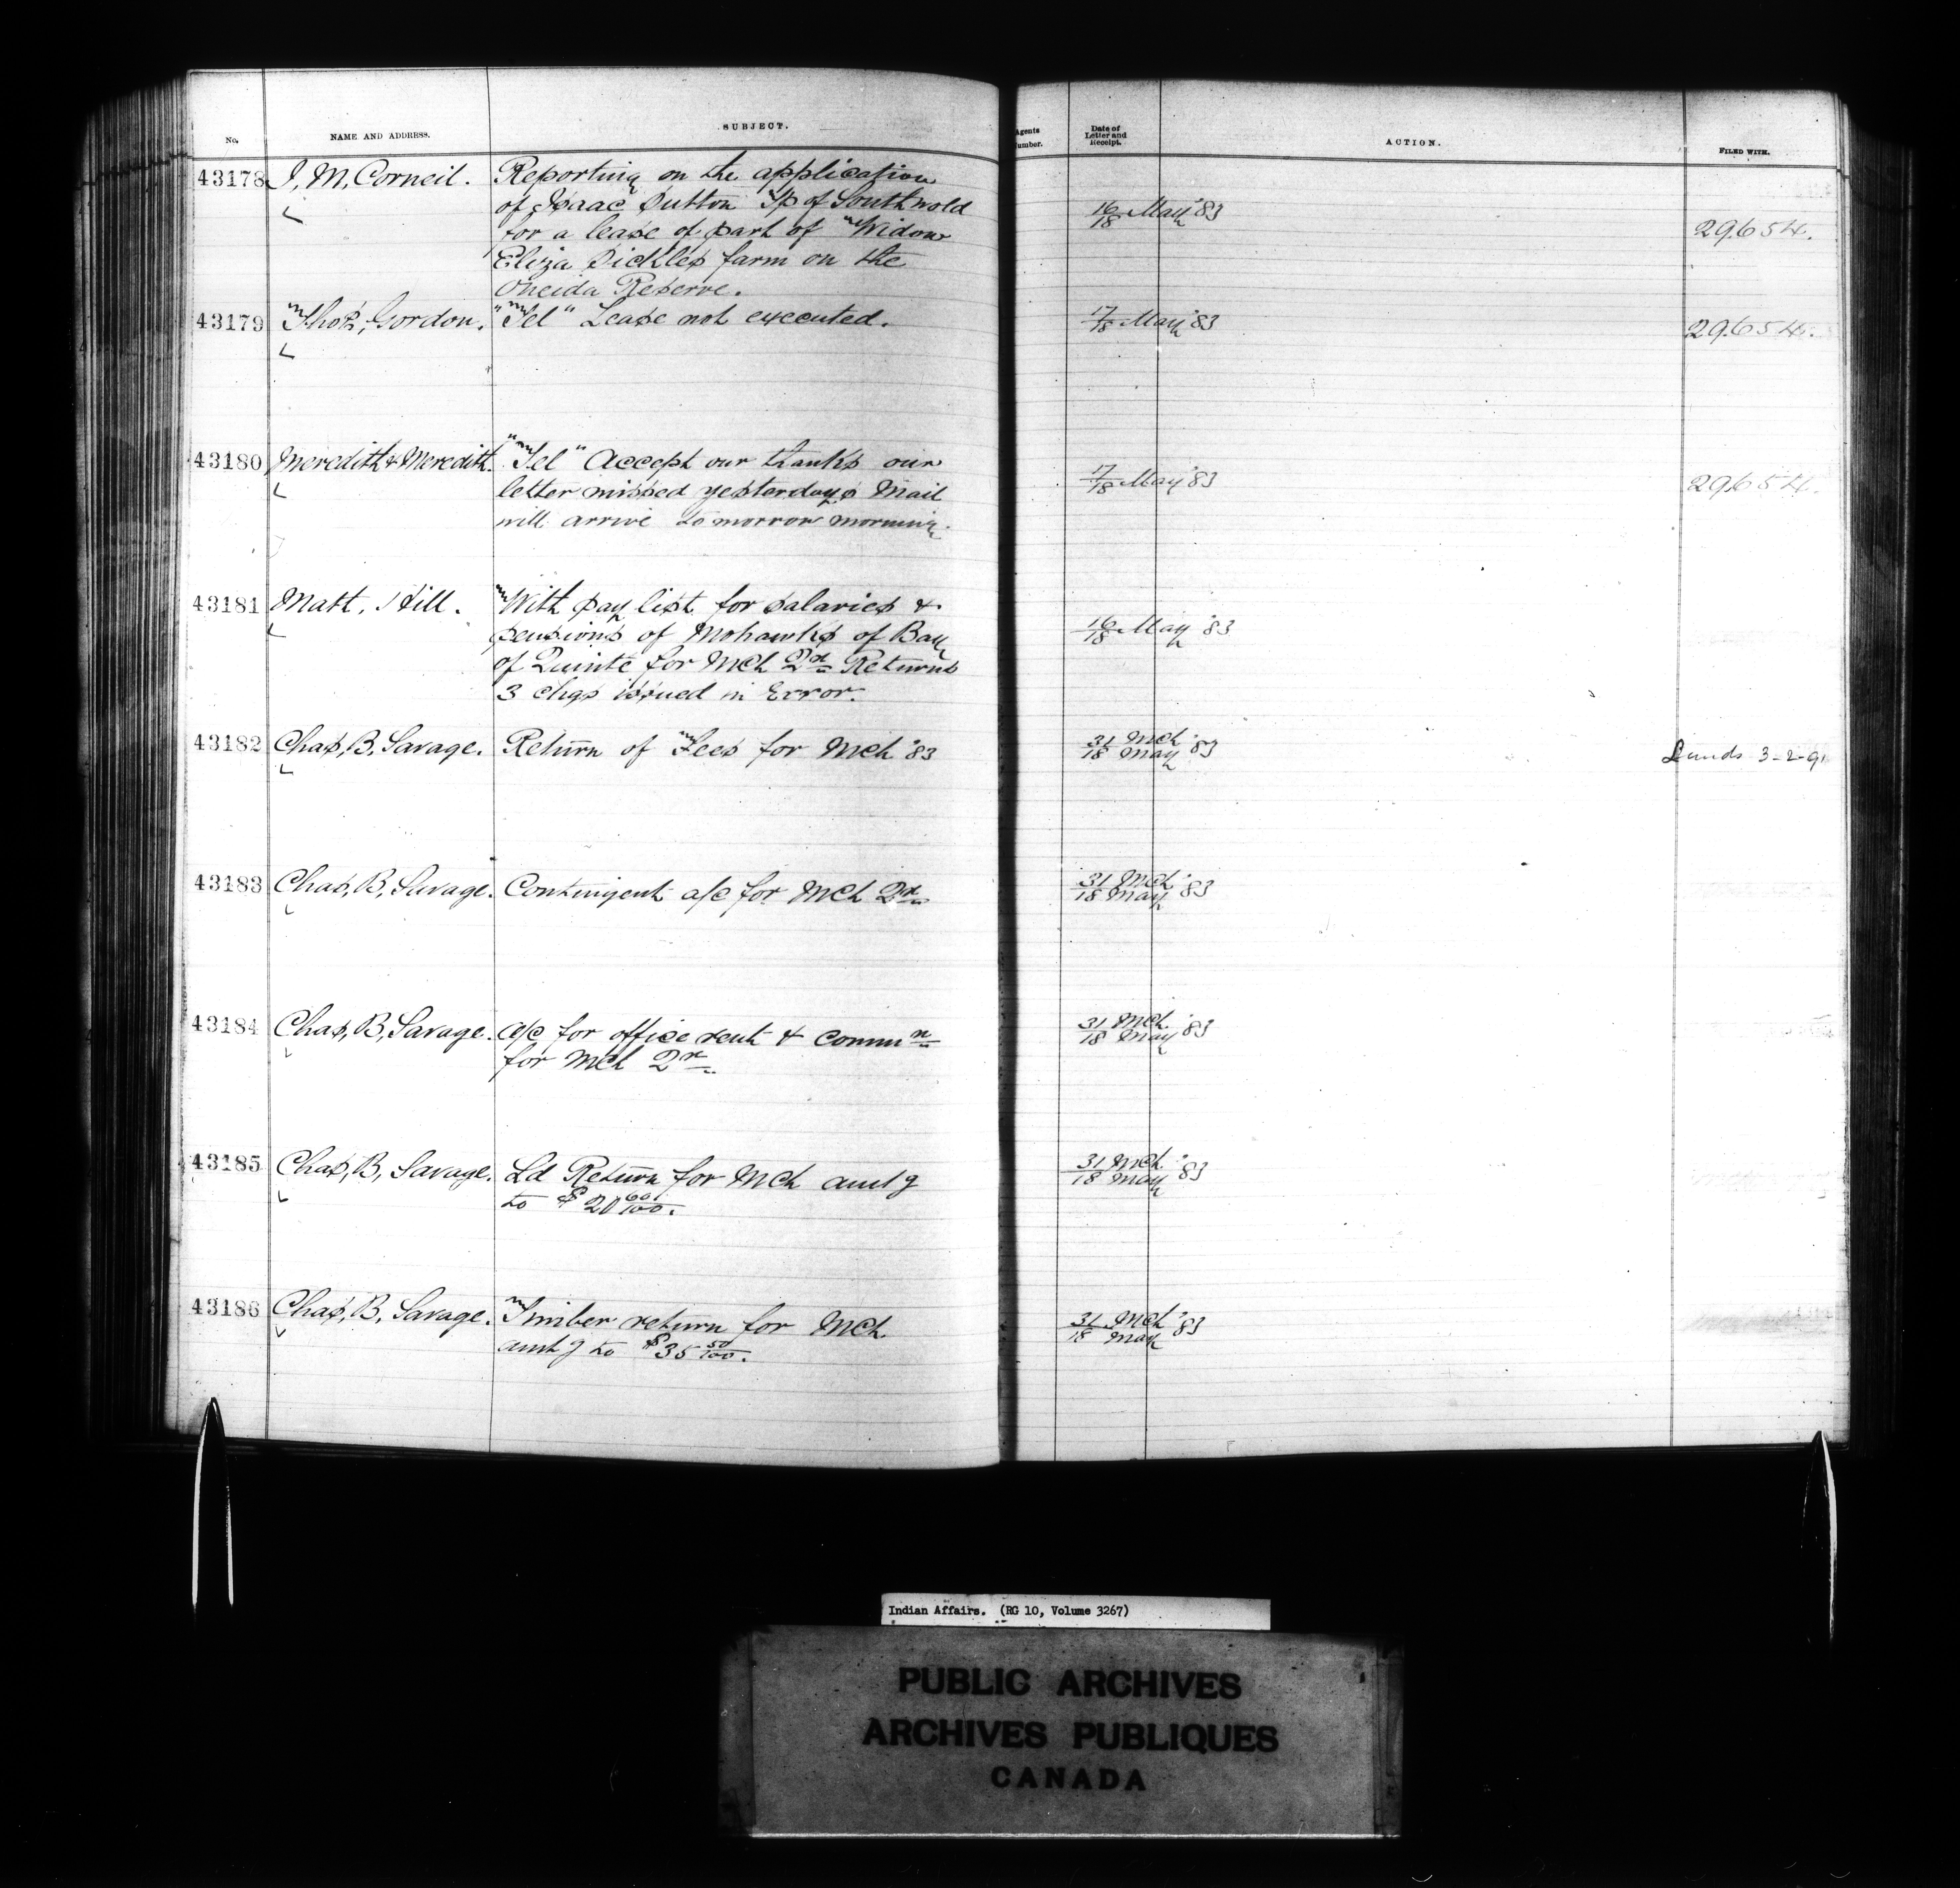 No. NAME AND ADDRESS. SUBJECT. Agents umber. Date of Letter and Receipt. ACTION. FILED WITH.
43178 J, M, Corneil. Reporting on the application 16/18 May '83 29654.
of Isaac Sutton Tp of Southwold
for a lease of part of Widow
Eliza Sickles farm on the
Oneida Reserve.
43179 Thos, Gordon. "Tel" Lease not executed. 17/18 May '83 29654.
43180 Meredith & Meredith. "Tel" Accept our thanks our 17/18 May '83 29654.
letter missed yesterdays Mail
will arrive to morrow morning.
43181 Matt, Hill. With pay list for salaries & 16/18 May '83
pensions of Mohawks of Bay
of Quinte for Mch Qr Returns
3 chqs issued in Error.
43182 Chas, B, Savage. Return of Fees for Mch '83 31 Mch/18 May '83 Lands 3-2-91
43183 Chas, B, Savage. Contingent a/c for Mch Qr 31 Mch/18 May '83
43184 Chas, B, Savage. a/c for office rent & commn 31 Mch/18 May '83
for Mch Qr
43185 Chas, B, Savage. Ld Return for Mch amtg 31 Mch/18 May '83
to $20 60/100.
43186 Chas, B, Savage. Timber return for Mch 31 Mch/18 May '83
amtg to $35 50/100.
Indian Affairs. (RG 10, Volume 3267)
PUBLIC ARCHIVES
ARCHIVES PUBLIQUES
CANADA